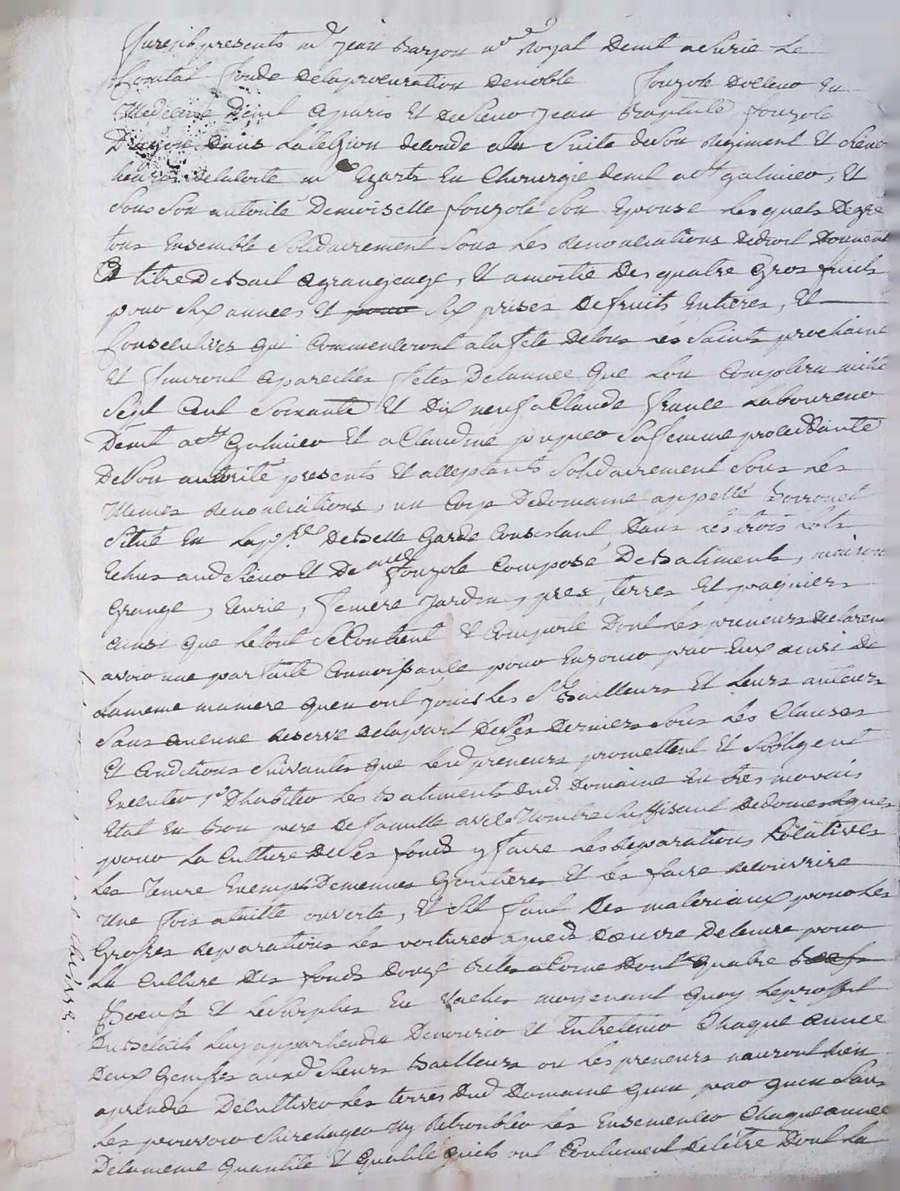 furent presents me jean Baryon nre Royal demt a Surie Le
Comtal fondé de la procuration de noble Jouzole docteur En
Medecine demt a paris Et de Sieur jean Baptiste Jouzole
Dragon dans La Legion de Condé a la Suite de Son Regiment Et Sieur
me Ezarts En Chirurgie demt a St galmier, Et
Sous Son autorité Demoiselle Jouzole Son Epouse Lesquels De gré
tous Ensemble Solidairement Sous Les Renonciations de droit Donnent
a titre de bail a grangeage, Et a moitié Des quatre gros fruits
pour Six années Et pour Six prises de fruits Entieres, Et
Consecutives qui Commenceront a la fete de tous Les Saints prochaine
Et finiront a pareilles fetes De Lannée que Lon Comptera mille
Sept Cent Soixante Et Dix neuf a Claude france Laboureur
Demt a St Galmier Et a Claudine Sa femme procedante
De Son autorité presents Et acceptants Solidairement Sous Les
Memes Renonciations, un Corps De domaine appellé
Situé En La psse De Belle Garde Consistant Dans Les trois Lots
Echus aud Sieur Et De aud Jouzole Composé De Batiments, maison
Grange, Ecurie, Jardin, prez, terres Et paquiers
ainsi que Le tout Se Contient Et Comporte Dont Les preneurs declarent
avoir une parfaite Connoissance pour En jouir par Eux ainsi De
La meme maniere quen ont joui Les Srs Bailleurs Et Leurs auteurs
Sans aucune Reserve de la part De Ces Derniers Sous Les Clauses
Et Conditions Suivantes que Lesd preneurs promettent Et Sobligent
Executer 1º Dhabiter Les Batiments dud. Domaine En tres mavais
Etat En bon pere de famille avec Nombre Suffisant de domestiques
pour La Culture De Ses fonds y faire Les Reparations Locatives
Les Tenir Exempts De menues Goutieres Et Les faire Recouvrire
Une fois a taille ouverte, Et Sil faut Des materiaux pour Les
Grosses Reparations Les voiturer a pied Doeuvre De tenir pour
La Culture Des fonds Douze Betes a Corne Dont quatre Boeufs
Boeufs Et Le Surplus En Vaches moyenant quoy Le proffit
Du Betail Luy appartiendra De nourir Et Entretenir Chaque année
Deux Genisses auxd Sieurs Bailleurs ou Les preneurs nauront Rien
a prendre De Cultiver Les terres Dud Domaine quen par quen San
Les pouvoir ny Retroubler Les Ensemencer Chaque année
De La meme quantité Et qualité quils ont Coutument De Letre Dont La